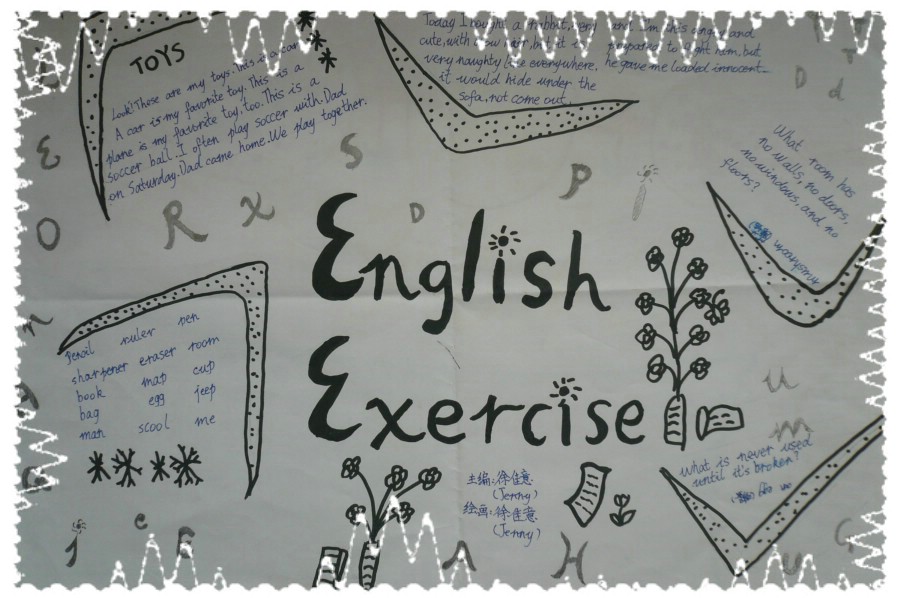 TOYS
Look! These are my toys. This is a car
A car is my favorite toy. This is a
plane is my favorite toy, too. This is a
soccer ball. I often play soccer with Dad
on Saturday. Dad came home. We play together.
Today I bought a rabbit, very
cute, with snow hair, but it is
very naughty like everywhere.
it would hide under the
sofa, not come out.
and I'm this angry and
prepared to fight him, but
he gave me loaded innocent.
What room has
no walls, no doors,
no windows, and no
floors?
English
Exercise
Pencil ruler pen
sharpener eraser room
book map cup
bag egg jeep
man scool me
what is never used
until it's broken?
主编:徐佳意
(Jenny)
绘画:徐佳意
(Jenny)
E
O
R
X
S
D
P
D
d
T
u
m
A
H
J
e